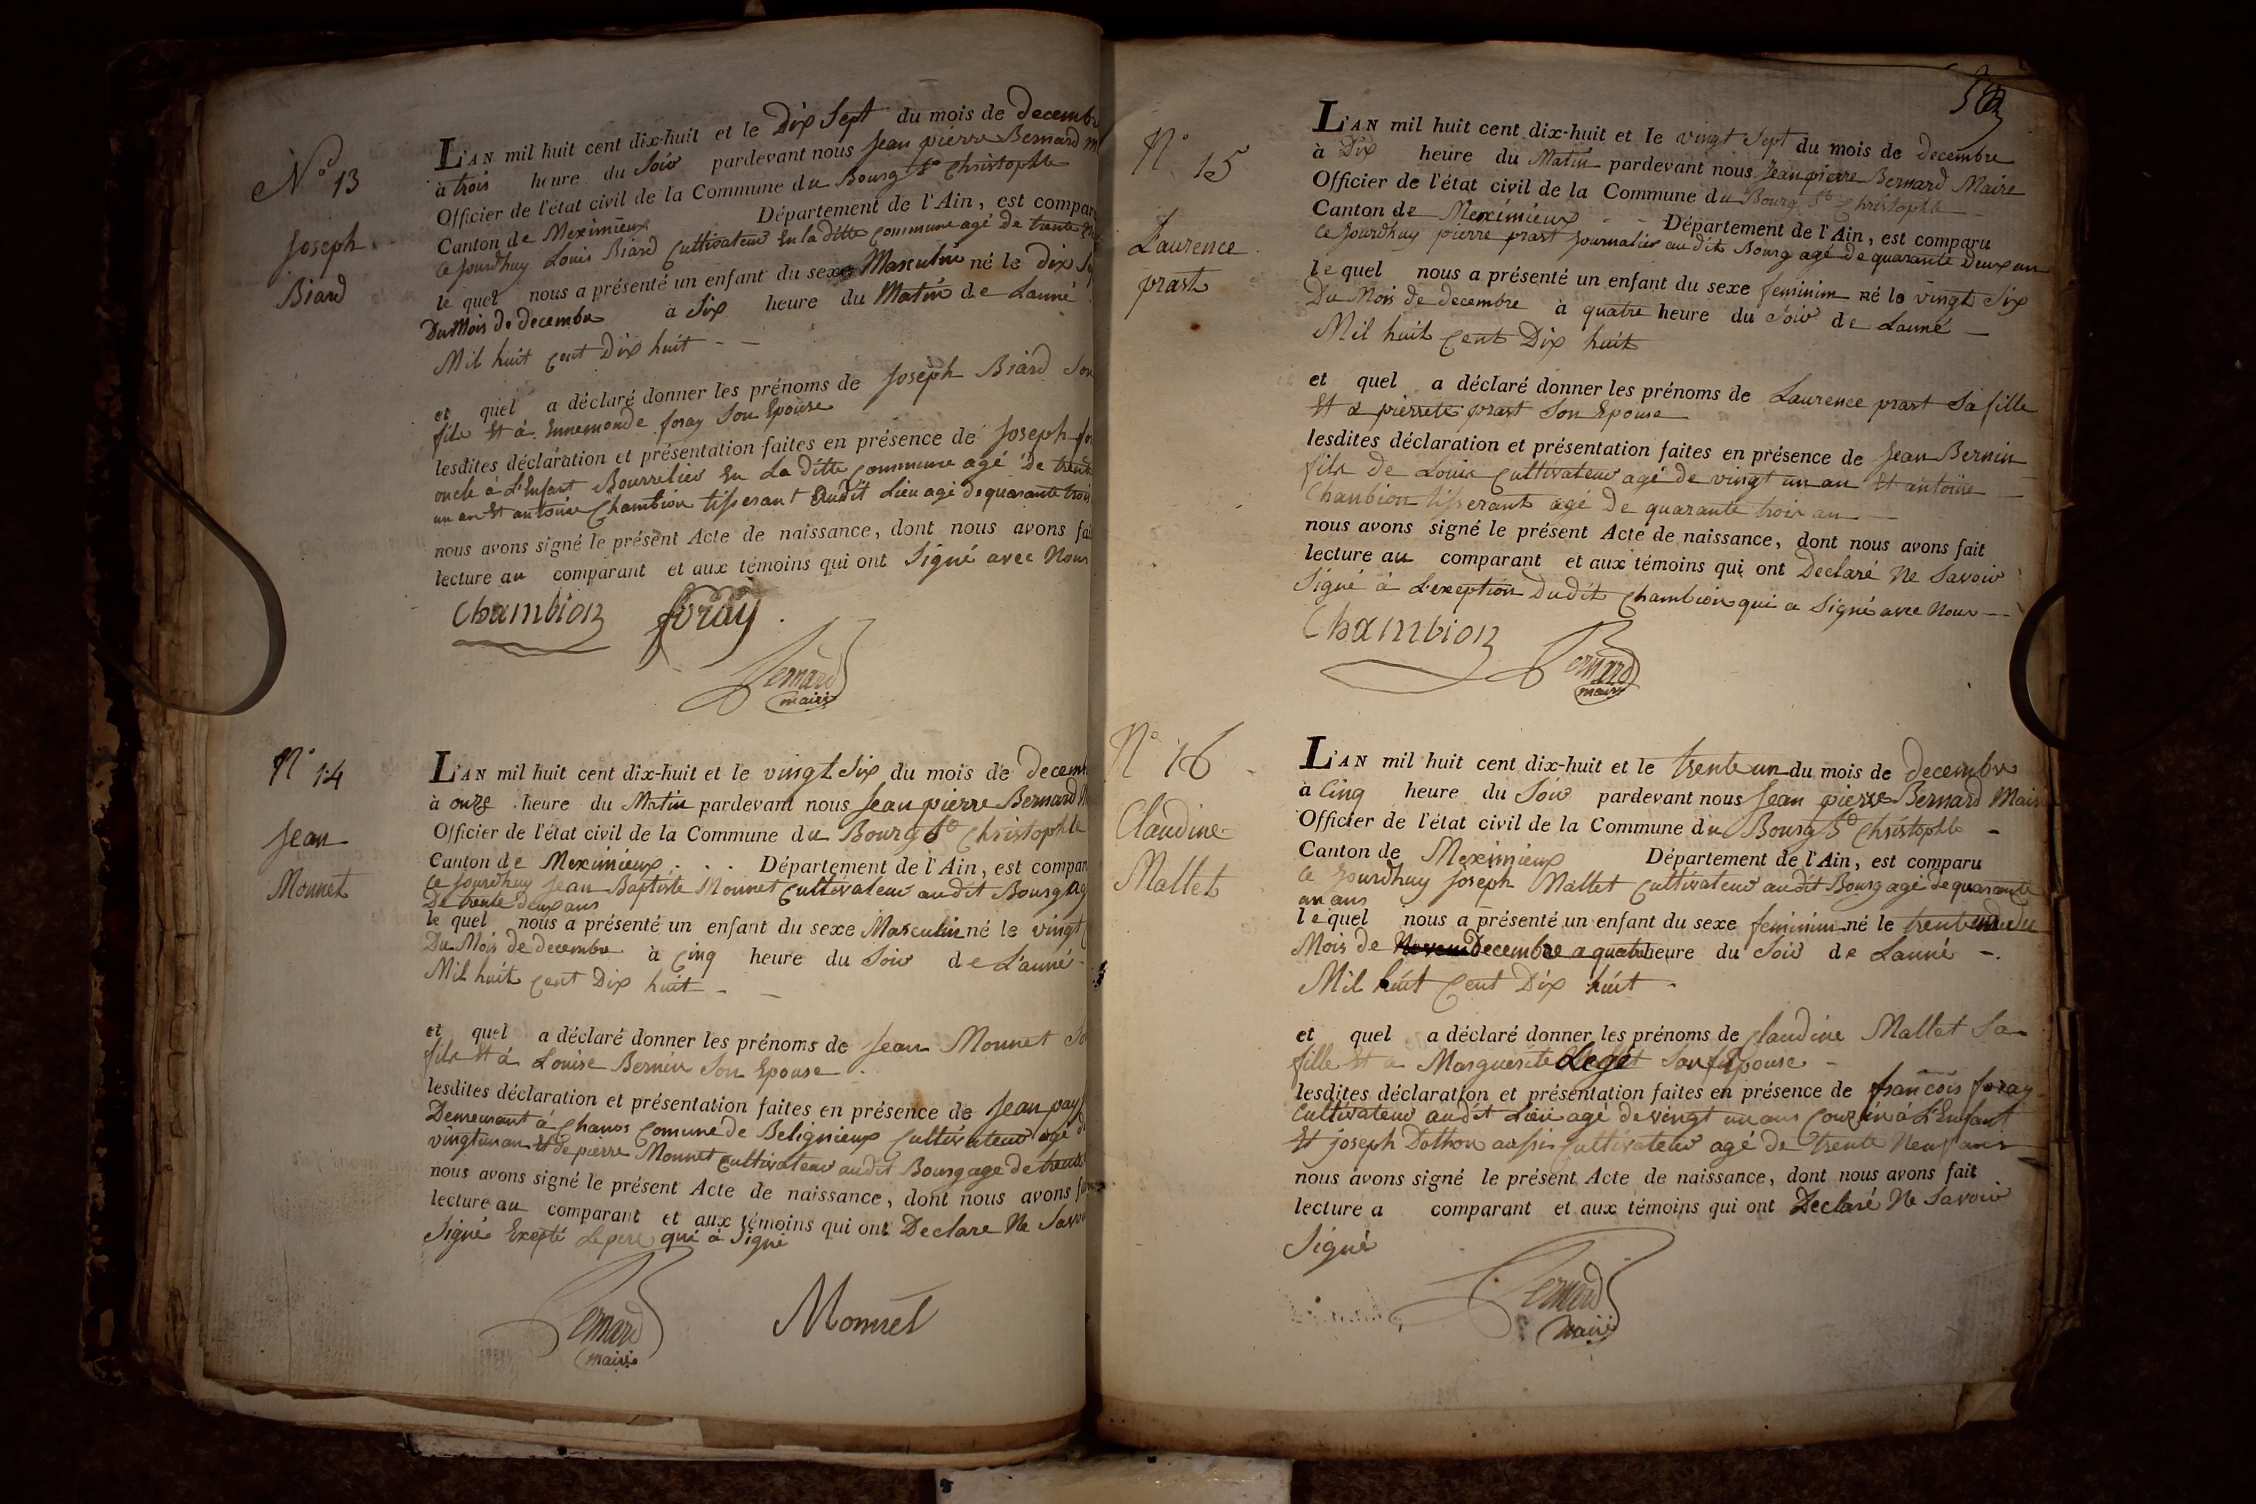 N° 13
Joseph
Biard
L'AN mil huit cent dix-huit et le Dix Sept du mois de decemb
à trois heure du Soir pardevant nous Jean pierre Bernard m
Officier de l'état civil de la Commune du Bourg St Christophle
Canton de Meximieux Département de l'Ain, est compar
Ce Jourdhuy Louis Biard Cultivateur En la ditte Commune agé De trente
le quel nous a présenté un enfant du sexe Masculin né le dix Se
Du Mois de decembre à Six heure du Matin de Lanné
Mil huit Cent Dix huit - -
et quel a déclaré donner les prénoms de Joseph Biard Son
fils Et à Ennemonde foray Son Epouse
lesdites déclaration et présentation faites en présence de Joseph fo
oncle à L'Enfant Bourrelier En La ditte Commune agé De trente
un an Et antoine Chambion tisserant Audit Lieu agé de quarante trois
nous avons signé le présent Acte de naissance, dont nous avons fai
lecture au comparant et aux témoins qui ont Signé avec Nous
Chambion foray
Bernard
maire
N° 14
Jean
Monnet
L'AN mil huit cent dix-huit et le vingt Six du mois de decem
à onze heure du Matin pardevant nous Jean pierre Bernard M
Officier de l'état civil de la Commune du Bourg St Christophle
Canton de Meximieux - - - Département de l'Ain, est compar
Ce Jourdhuy Jean Baptiste Monnet Cultivateur audit Bourg ag
De trente deux ans
le quel nous a présenté un enfant du sexe Masculin né le vingt
Du Mois de decembre à Cinq heure du Soir de L'anné -
Mil huit Cent Dix huit - -
et quel a déclaré donner les prénoms de Jean Monnet So
fils Et à Louise Bernin Son Epouse
lesdites déclaration et présentation faites en présence de Jean pay
Demeurant à Chanos Comune de Belignieux Cultivateur agé d
vingt un an Et de pierre Monnet Cultivateur audit Bourg age de trente
nous avons signé le présent Acte de naissance, dont nous avons fai
lecture au comparant et aux témoins qui ont Declare Ne Savoi
Signé Exepté Le pere qui à Signé
Bernard
maire
Monnet
N° 15
Laurence
prast
L'AN mil huit cent dix-huit et le vingt Sept du mois de decembre
à Dix heure du Matin pardevant nous Jean pierre Bernard Maire
Officier de l'état civil de la Commune du Bourg St Christophle -
Canton de Meximieux - - Département de l'Ain, est comparu
Ce Jourdhuy pierre prast Journalier au dit Bourg agé de quarante Deux an
le quel nous a présenté un enfant du sexe feminim né le vingt Six
Du Mois de decembre à quatre heure du Soir de Lanné -
Mil huit Cent Dix huit
et quel a déclaré donner les prénoms de Laurence prast Sa fille
Et a pierrete prast Son Epouse
lesdites déclaration et présentation faites en présence de Jean Bernin
fils de Louis Cultivateur agé de vingt un an Et antoine
Chanbion tisserant agé De quarante trois an
nous avons signé le présent Acte de naissance, dont nous avons fait
lecture au comparant et aux témoins qui ont Declaré Ne Savoir
Signé à L'exeption Dudit Chambion qui a Signé avec Nous --
Chambion
Bernard
maire
N° 16
Claudine
Mallet
L'AN mil huit cent dix-huit et le trente un du mois de decembre
à Cinq heure du Soir pardevant nous Jean pierre Bernard Maire
Officier de l'état civil de la Commune du Bourg St Christophle -
Canton de Meximieux Département de l'Ain, est comparu
Ce Jourdhuy Joseph Mallet Cultivateur audit Bourg agé de quarante
un ans
le quel nous a présenté un enfant du sexe feminim né le trente un du
Mois de Decembre a quatre heure du Soir de Lanné -
Mil huit Cent Dix huit -
et quel a déclaré donner les prénoms de Claudine Mallet Sa
fille Et a Marguerite Legé Son Epouse -
lesdites déclaration et présentation faites en présence de francois foray
Cultivateur audit Lieu agé de vingt un ans Couzin à L'Enfant
Et joseph Dothon aussi Cultivateur agé de trente Neuf ans
nous avons signé le présent Acte de naissance, dont nous avons fait
lecture a comparant et aux témoins qui ont Declaré Ne Savoir
Signé
Bernard
maire